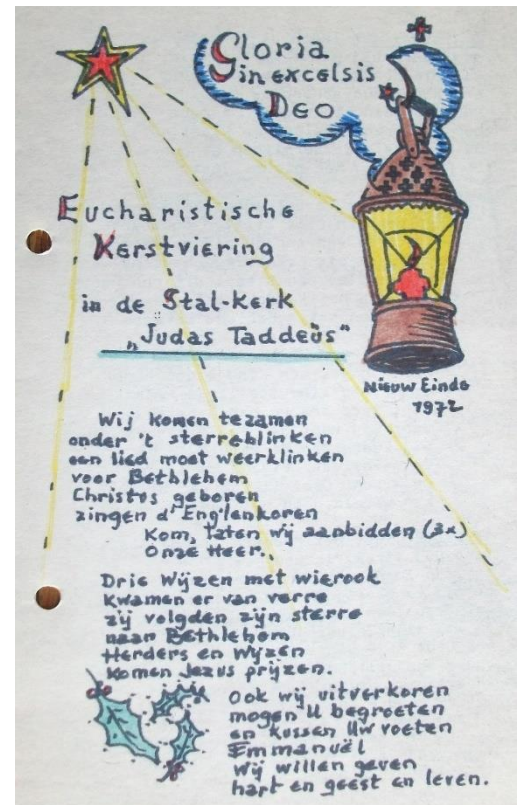 Gloria
in excelsis
Deo
Eucharistische
Kerstviering
in de Stal-kerk
„Judas Taddeüs"
Nieuw Einde
1972
Wij komen tezamen
onder 't sterreblinken
een lied moet weerklinken
voor Bethlehem
Christus geboren
zingen d'Englenkoren
Kom, laten wij aanbidden (3x)
Onze Heer.
Drie Wijzen met wierook
Kwamen er van verre
zij volgden zijn sterre
naar Bethlehem
Herders en Wijzen
komen Jezus prijzen.
Ook wij uitverkoren
mogen U begroeten
en kussen Uw voeten
Emmanuël
Wij willen geven
hart en geest en leven.